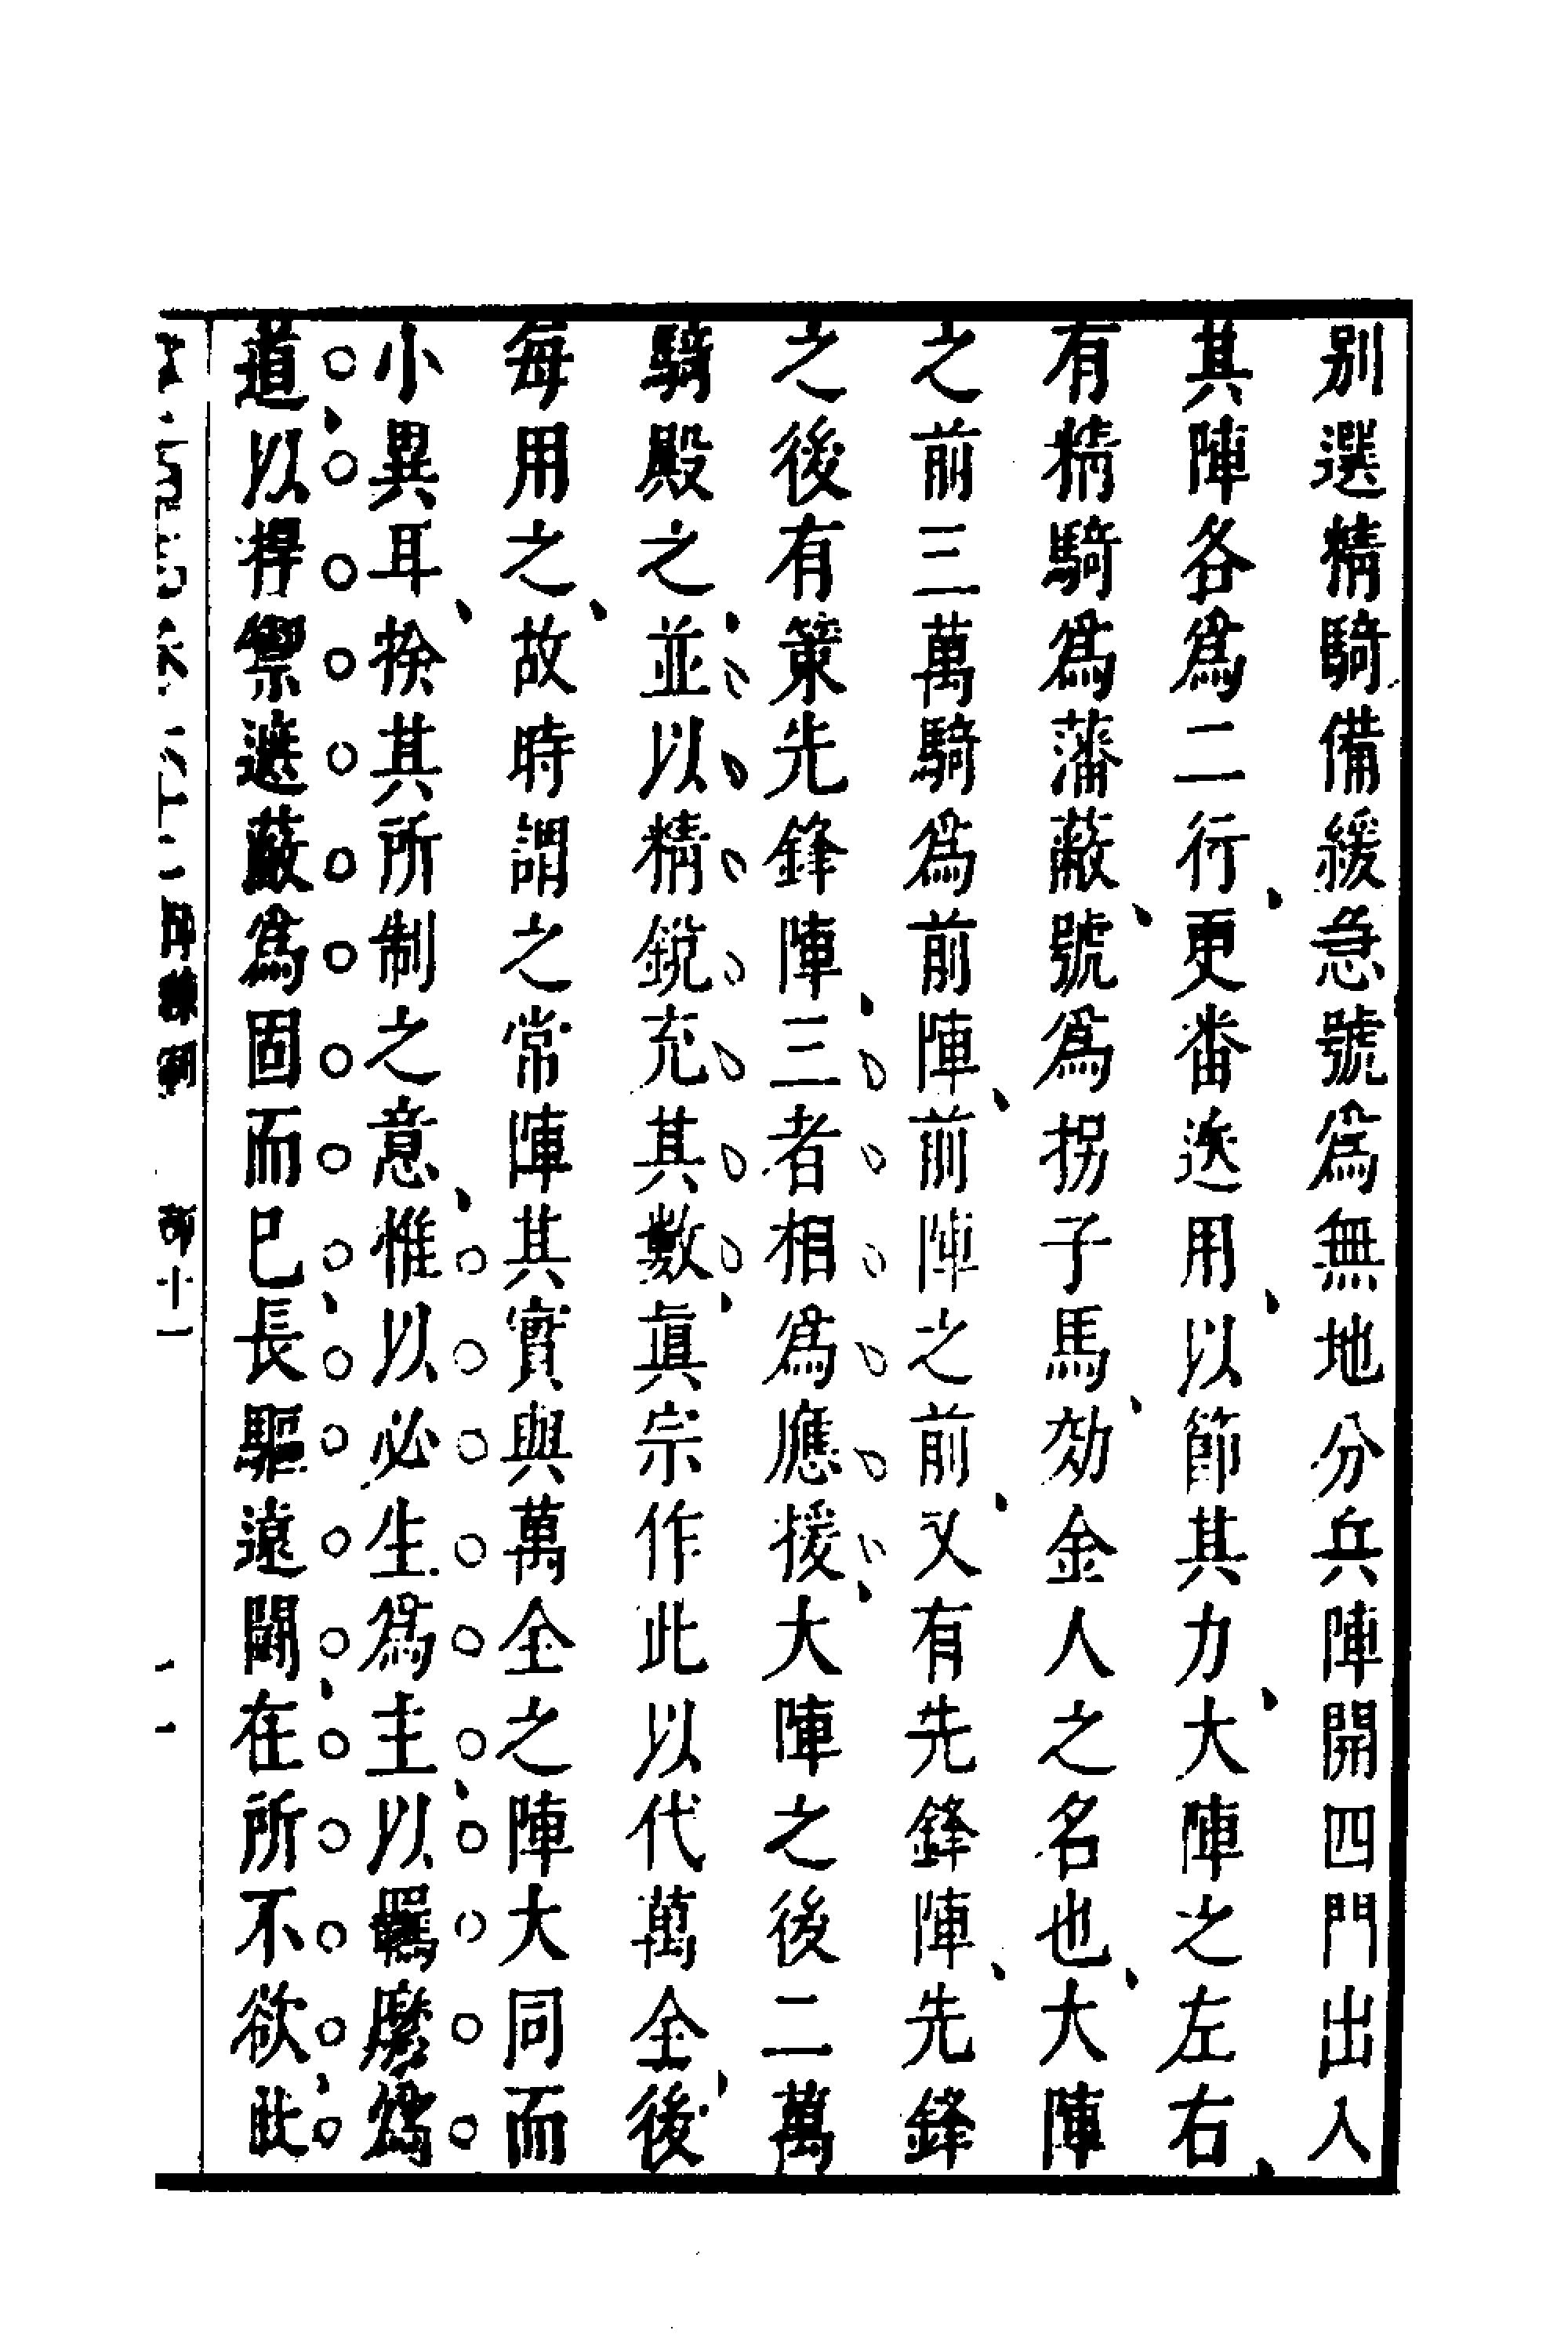 别選精騎備緩急號爲無地分兵陣開四門出入
其陣各爲二行更番迭用以節其力大陣之左右
有精騎爲藩蔽號爲拐子馬効金人之名也大陣
之前三萬騎爲前陣前陣之前又有先鋒陣先鋒
之後有策先鋒陣三者相爲應援大陣之後二萬
騎殿之並以精銳充其數眞宗作此以代萬全後
每用之故時謂之常陣其實與萬全之陣大同而
小異耳揆其所制之意惟以必生爲主以羈縻爲
道以捍禦遮蔽爲固而已長驅遠闘在所不欲此